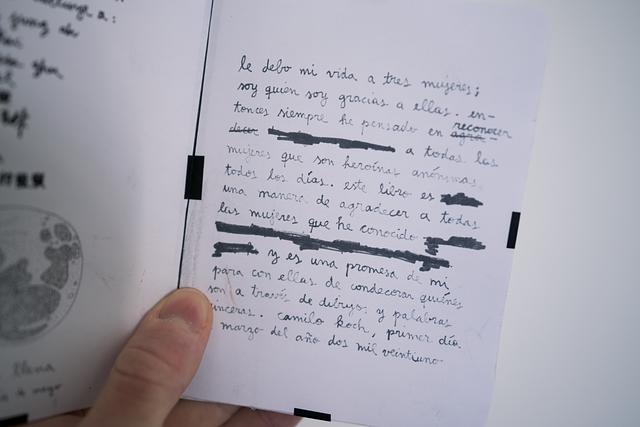 le debo mi vida a tres mujeres;
soy quien soy gracias a ellas. en-
tonces siempre he pensado en reconocer
agra-
decer a todas las
mujeres que son heroínas anónimas
todos los días. este libro es
una manera de agradecer a todas
las mujeres que he conocido
y es una promesa de mi
para con ellas de condecorar quienes
son a través de dibujos y palabras
sinceras. camilo koch, primer día
marzo del año dos mil veintiuno